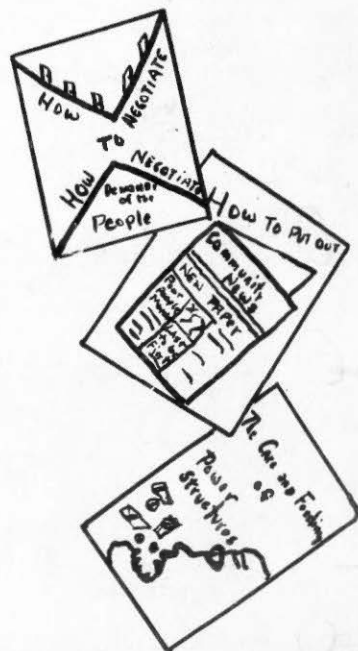 HOW NEGOTIATE
TO
HOW NEGOTIATE
Demands
of the
People
HOW TO PUT OUT
Community
News
NEW PAPER
The Care and Feeding
of
Power
structures